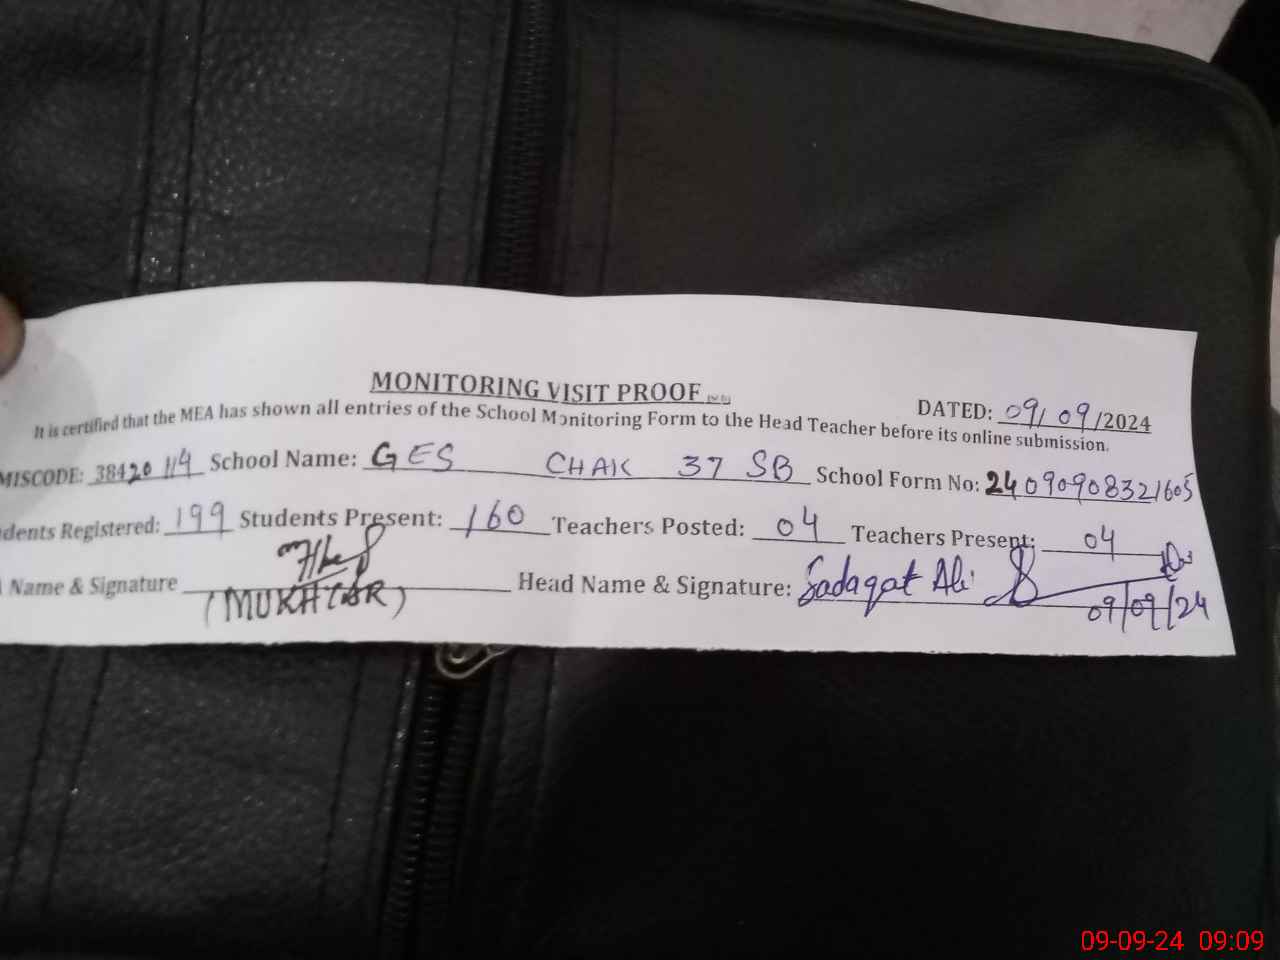 MONITORING VISIT PROOF
DATED: 09/09/2024
It is certified that the MEA has shown all entries of the School Monitoring Form to the Head Teacher before its online submission.
MISCODE: 38420114 School Name: GES CHAK 37 SB School Form No: 24090908321605
dents Registered: 199 Students Present: 160 Teachers Posted: 04 Teachers Present: 04
Name & Signature Head Name & Signature: Sadaqat Ali
(MUKHTAR) 09/09/24
09-09-24 09:09